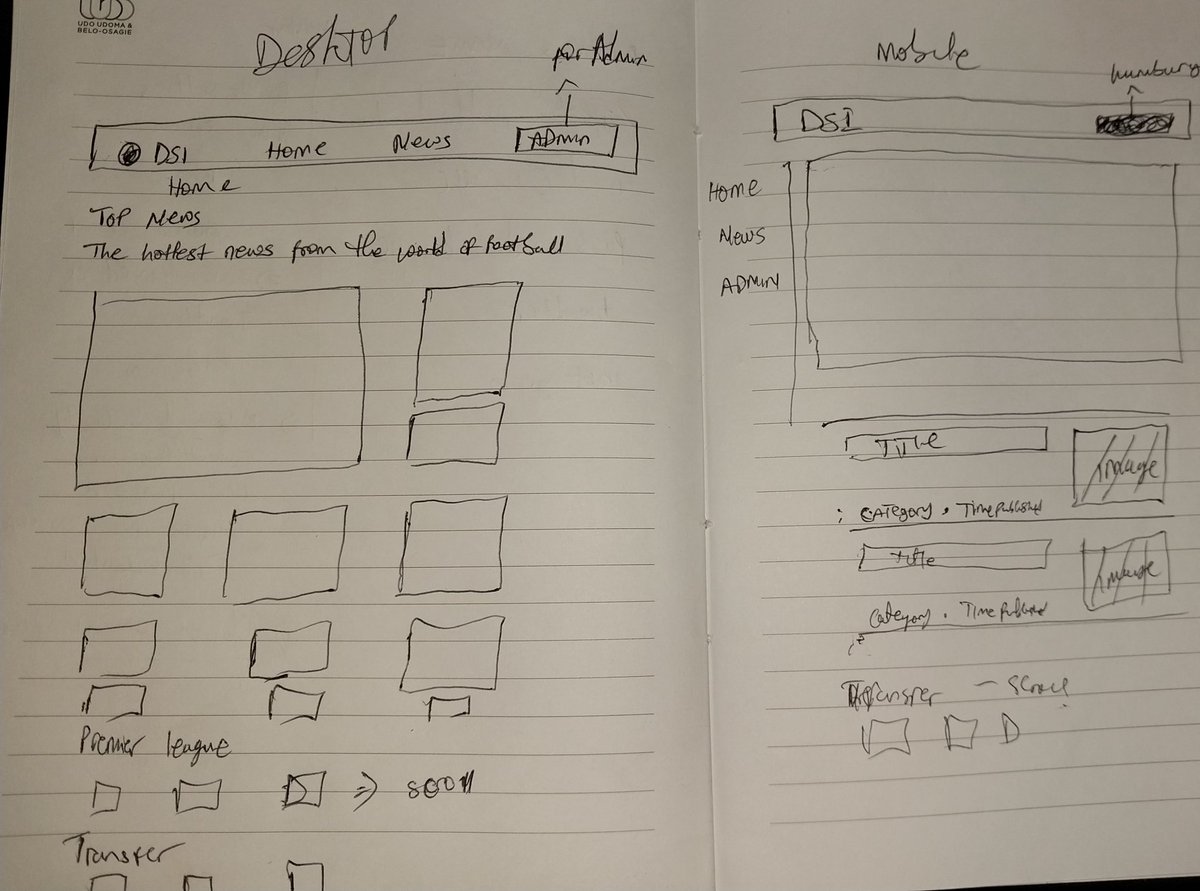 UDO UDOMA &
BELO-OSAGIE
Desktop
for Admin
DSI Home News ADMIN
Home
TOP News
The hottest news from the world of football
Premier league
Transfer
Mobile
DSI
Home
News
ADMIN
Title
Image
CATEGORY . Time Published
Title
Image
Category . Time Published
Transfer